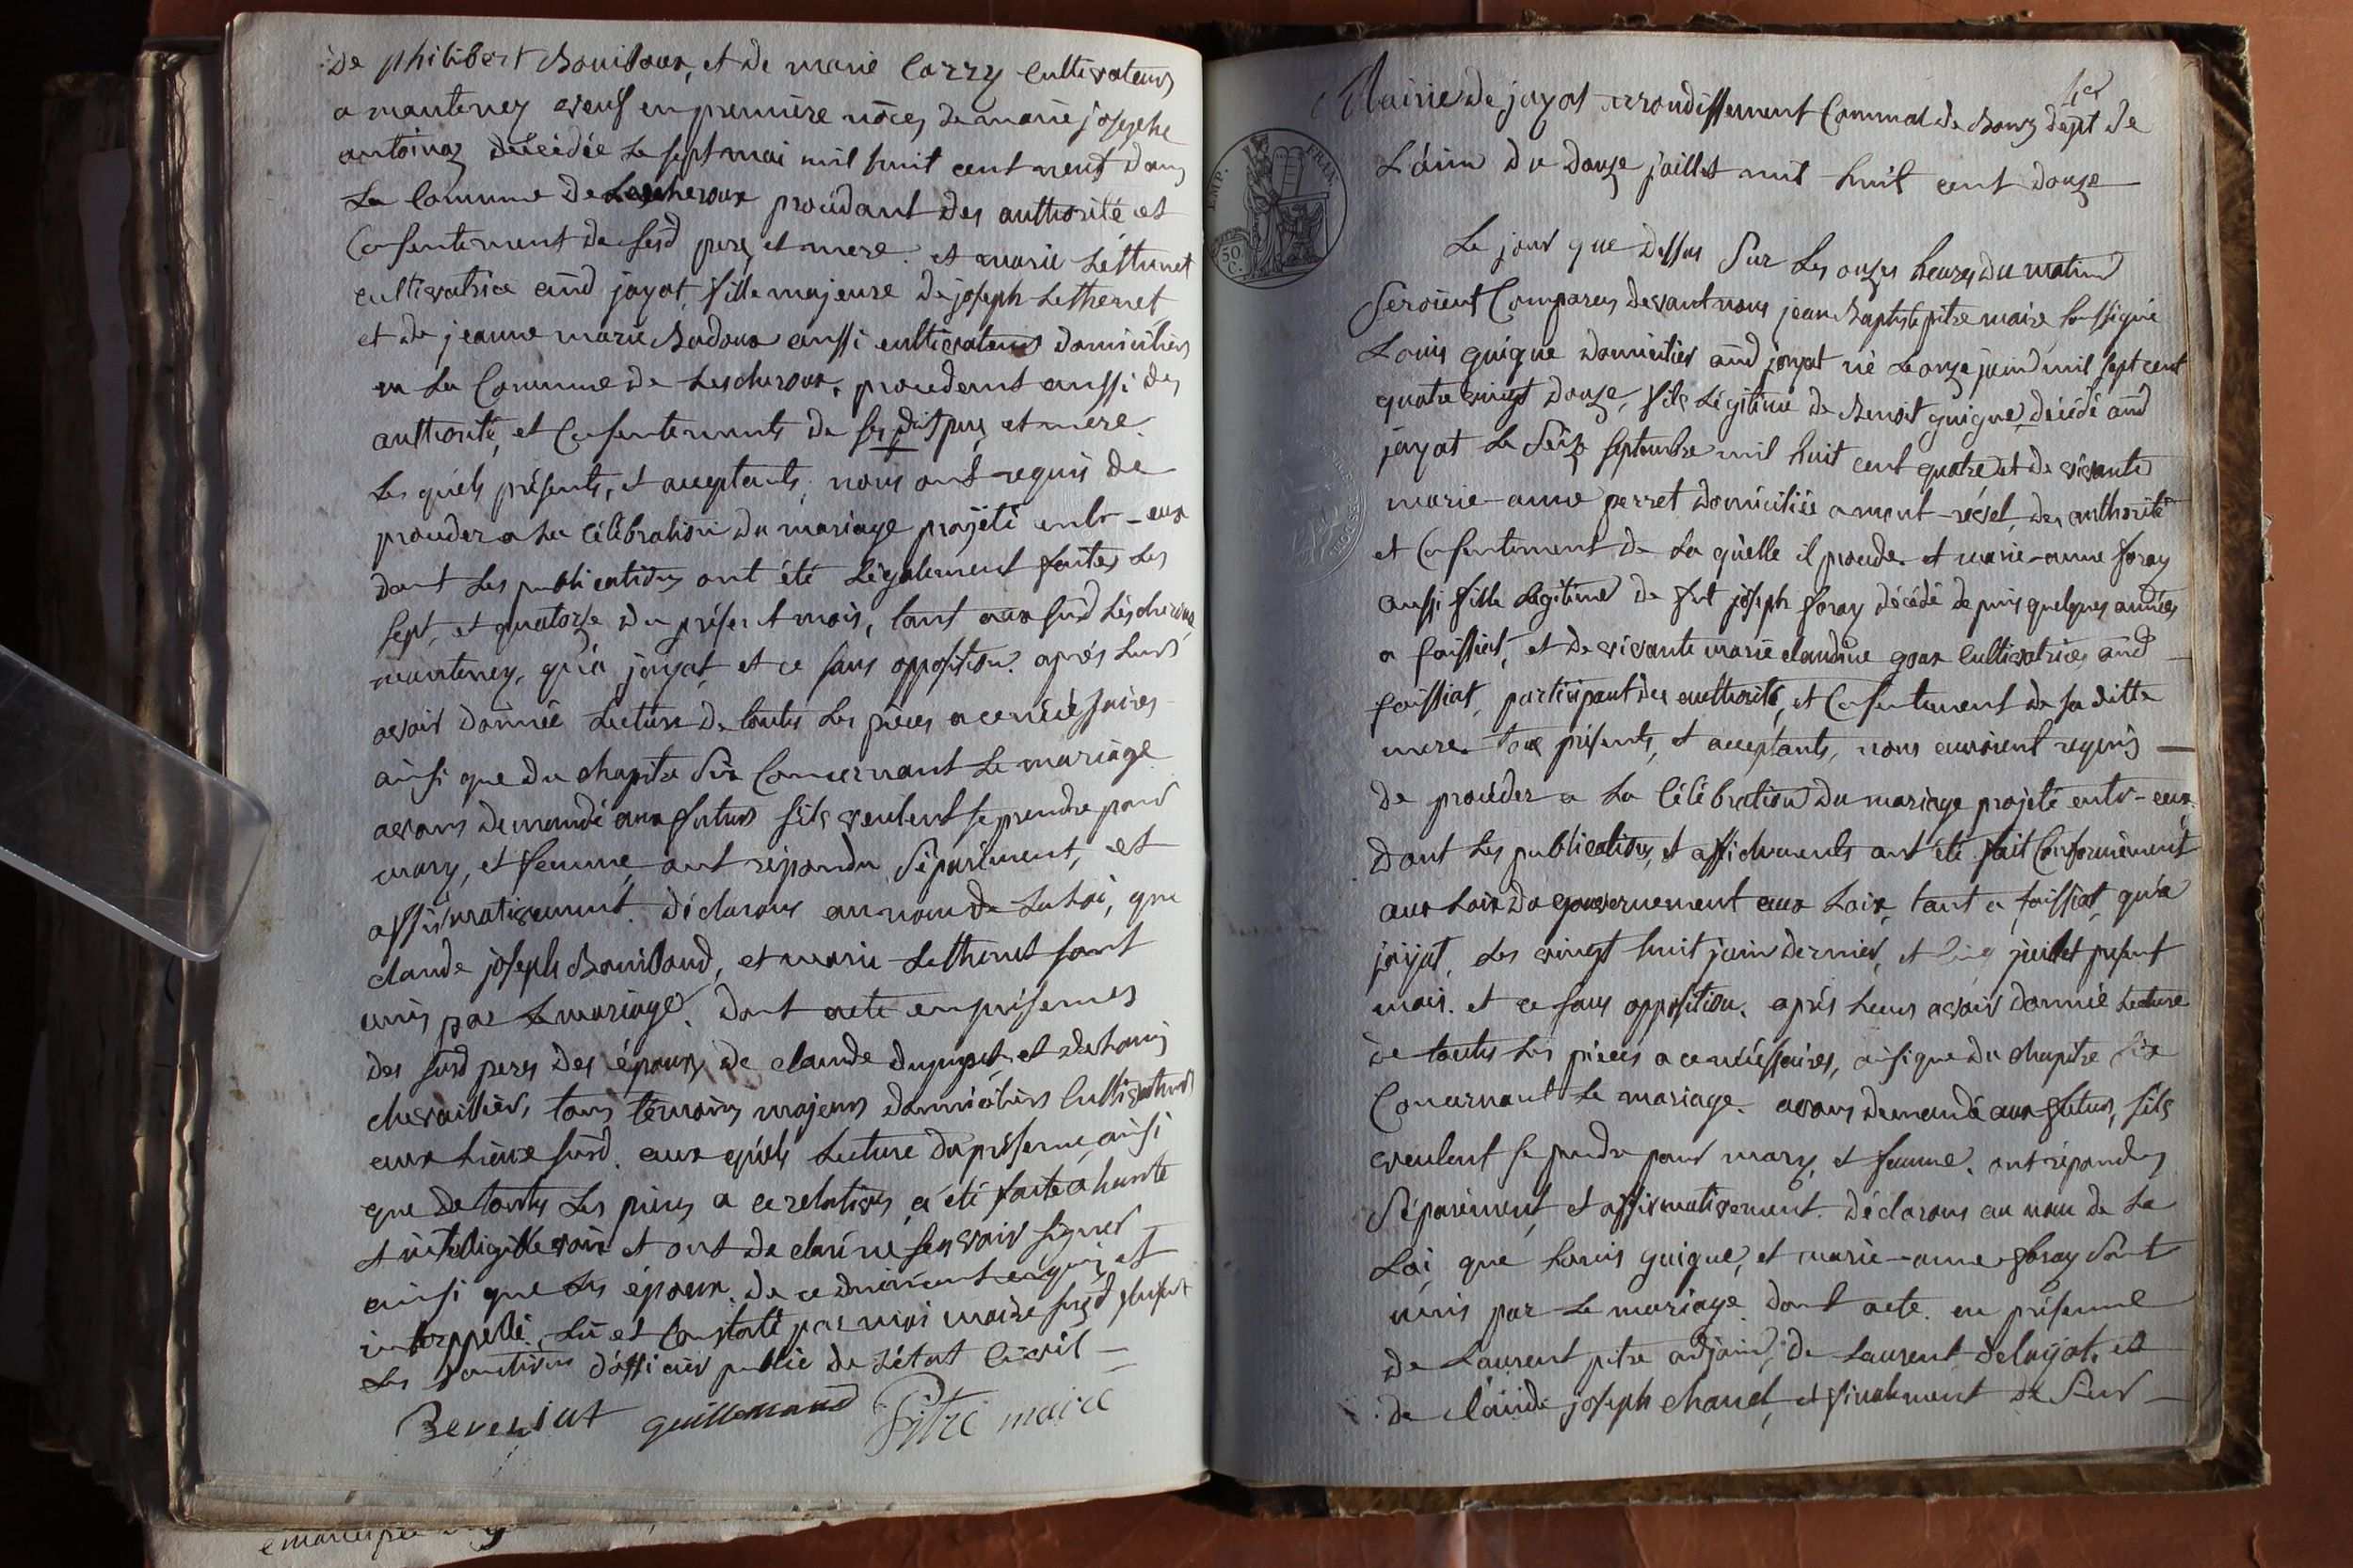 de philibert Bouidoux, et de marie Carry Cultivateurs
a mantenez veuf en première nôces de marie josephe
antoinaz décédée Le sept mai mil huit cent neuf dans
La Commune de Lescheroux procédant des authorité et
Consentement de sesd peres et mere. et marie Lethenet
cultivatrice aud jayat, fille majeure de joseph Lethenet
et de jeanne marie Badoux aussi cultivateurs domiciliés
en La Commune de Lescheroux. procedant aussi des
authorité, et Consentements de ses dits pere, et mere.
Les quels présents, et acceptants, nous ont requis de
proceder a La Célébration du mariage projeté entr-eux
dont Les publications ont été Légalement faites Les
sept, et quatorze du présent mois, tant aux susd Lescheroux
mantenez, qu'à jayat, et ce sans opposition. après Leurs
avoir donnée Lecture de toutes Les pieces a ce nécéssaires
ainsi que du chapitre Six Concernant Le mariage
avons demandé aux futurs sils veulent se prendre pour
mary, et femme, ont répondu Séparément, et
affirmativement. déclarons au nom de La Loi, que
claude joseph Bouidoud, et marie Lethenet sont
unis par Le mariage. dont acte en présences
des susd peres des époux, de claude dupupet, et de Louis
chevaillier, tous témoins majeurs domiciliés Cultivateurs
aux Lieux susd. aux quels Lecture du présent, ainsi
que de toutes Les pieces a ce relatives, a été faite a haute
et intelligible voix et ont déclaré ne sçavoir signer
ainsi que Les époux. de ce duement enquis, et
interppellé, Lu et Constaté par moi maire susd faisant
Les fonctions d'officier public de L'état Civil —
Reveyriat guillermand Pitre maire
Mairie de jayat arrondissement Communal de Bourg dept de
L'ain du douze juillet mil huit cent douze
Le jour que dessus Sur Les onzes heures du matin
Seroient Comparus devant nous jean Baptiste pitre maire soussigné
Louis guigue domicilié aud jayat né Le onze juin mil sept cent
quatre vingt douze, fils Légitime de Benoit guigue, décédé aud
jayat Le Seize septembre mil huit cent quatre et de vivante
marie-anne perret domiciliée a mont-revel, des authorité
et Consentement de La quelle il procede. et marie-anne foray
aussi fille Légitime de fut joseph foray décédé depuis quelques années
a foissiat, et de vivante marie claudine goux Cultivatrice aud —
foissiat, participant des authorité, et Consentement de sa ditte
mere. tous présents, et acceptants, nous auroient requis —
de procéder a La Célébration du mariage projeté entr-eux.
dont Les publications, et affichements ont été fait Conformément
aux Loix du gouvernement aux Loix, tant a foissiat, qu'a
jayat, Les vingt huit juin dernier, et Cinq juillet present
mois. et ce sans opposition. après Leurs avoir donnée Lecture
de toutes Les pièces a ce nécéssaires, ainsi que du chapitre Six
Concernant Le mariage. avons demandé aux futurs, sils
veulent se prendre pour mary, et femme. ont répondus
Séparément, et affirmativement. déclarons au nom de La
Loi, que Louis guigue, et marie-anne foray Sont
unis par Le mariage. dont acte. en présence
de Laurent pitre adjoint, de Laurent delayat, et
de Claude joseph chanel, et finalement de Sieur —
EMP. FRAN.
50 C.